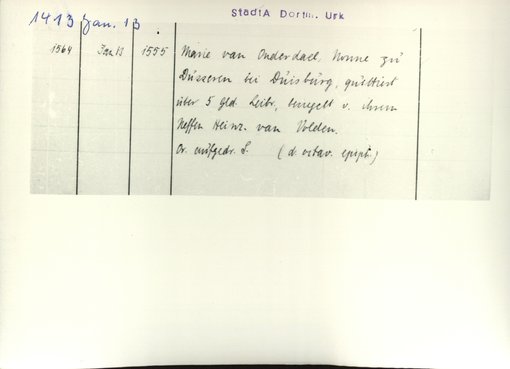 StadtA Dortm. Urk
1413 Jan. 13
1564 Jan 13 1555 Marie van Onderdael, Nonne zu
Düsseren bei Duisburg, quittiert
über 5 Gld. Leibr., besiegelt v. ihrem
Neffen Heinr. van Volden.
Or. aufgedr. S. (d. octav. epiph.)